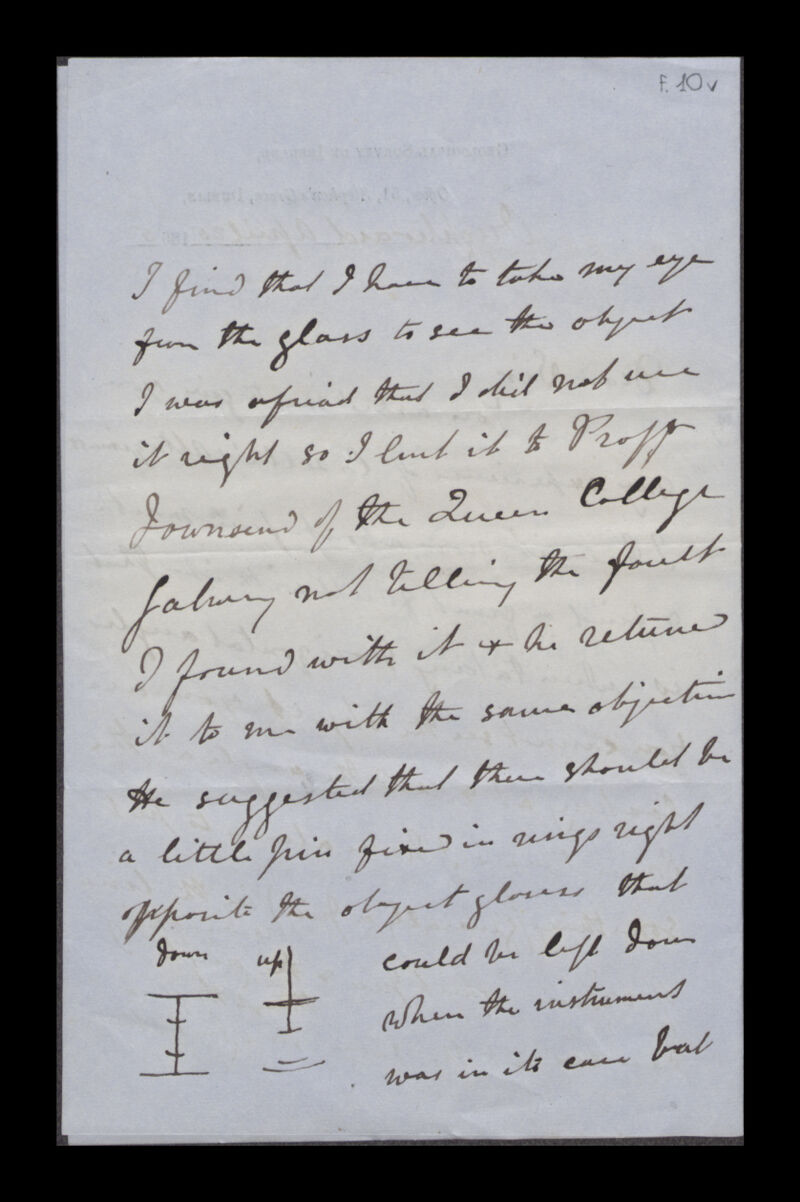 f. 10v
I find that I have to take my eye
from the glass to see the object
I was afriad that I did not use
it right so I lent it to Proffr
Townsend of the Queens College
Galway not telling the fault
I found with it + he returned
it to me with the same objection
He suggested that there should be
a little pin fixed in rings right
opposite the object glasses that
down up could be left down
when the instrument
was in its case but